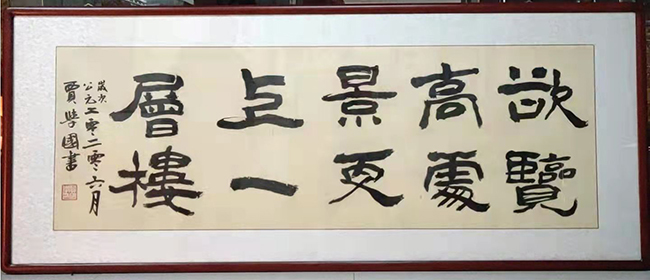 欲覽
高處
景更
上一
層樓
歲次
公元二零二零六月
賈學國書